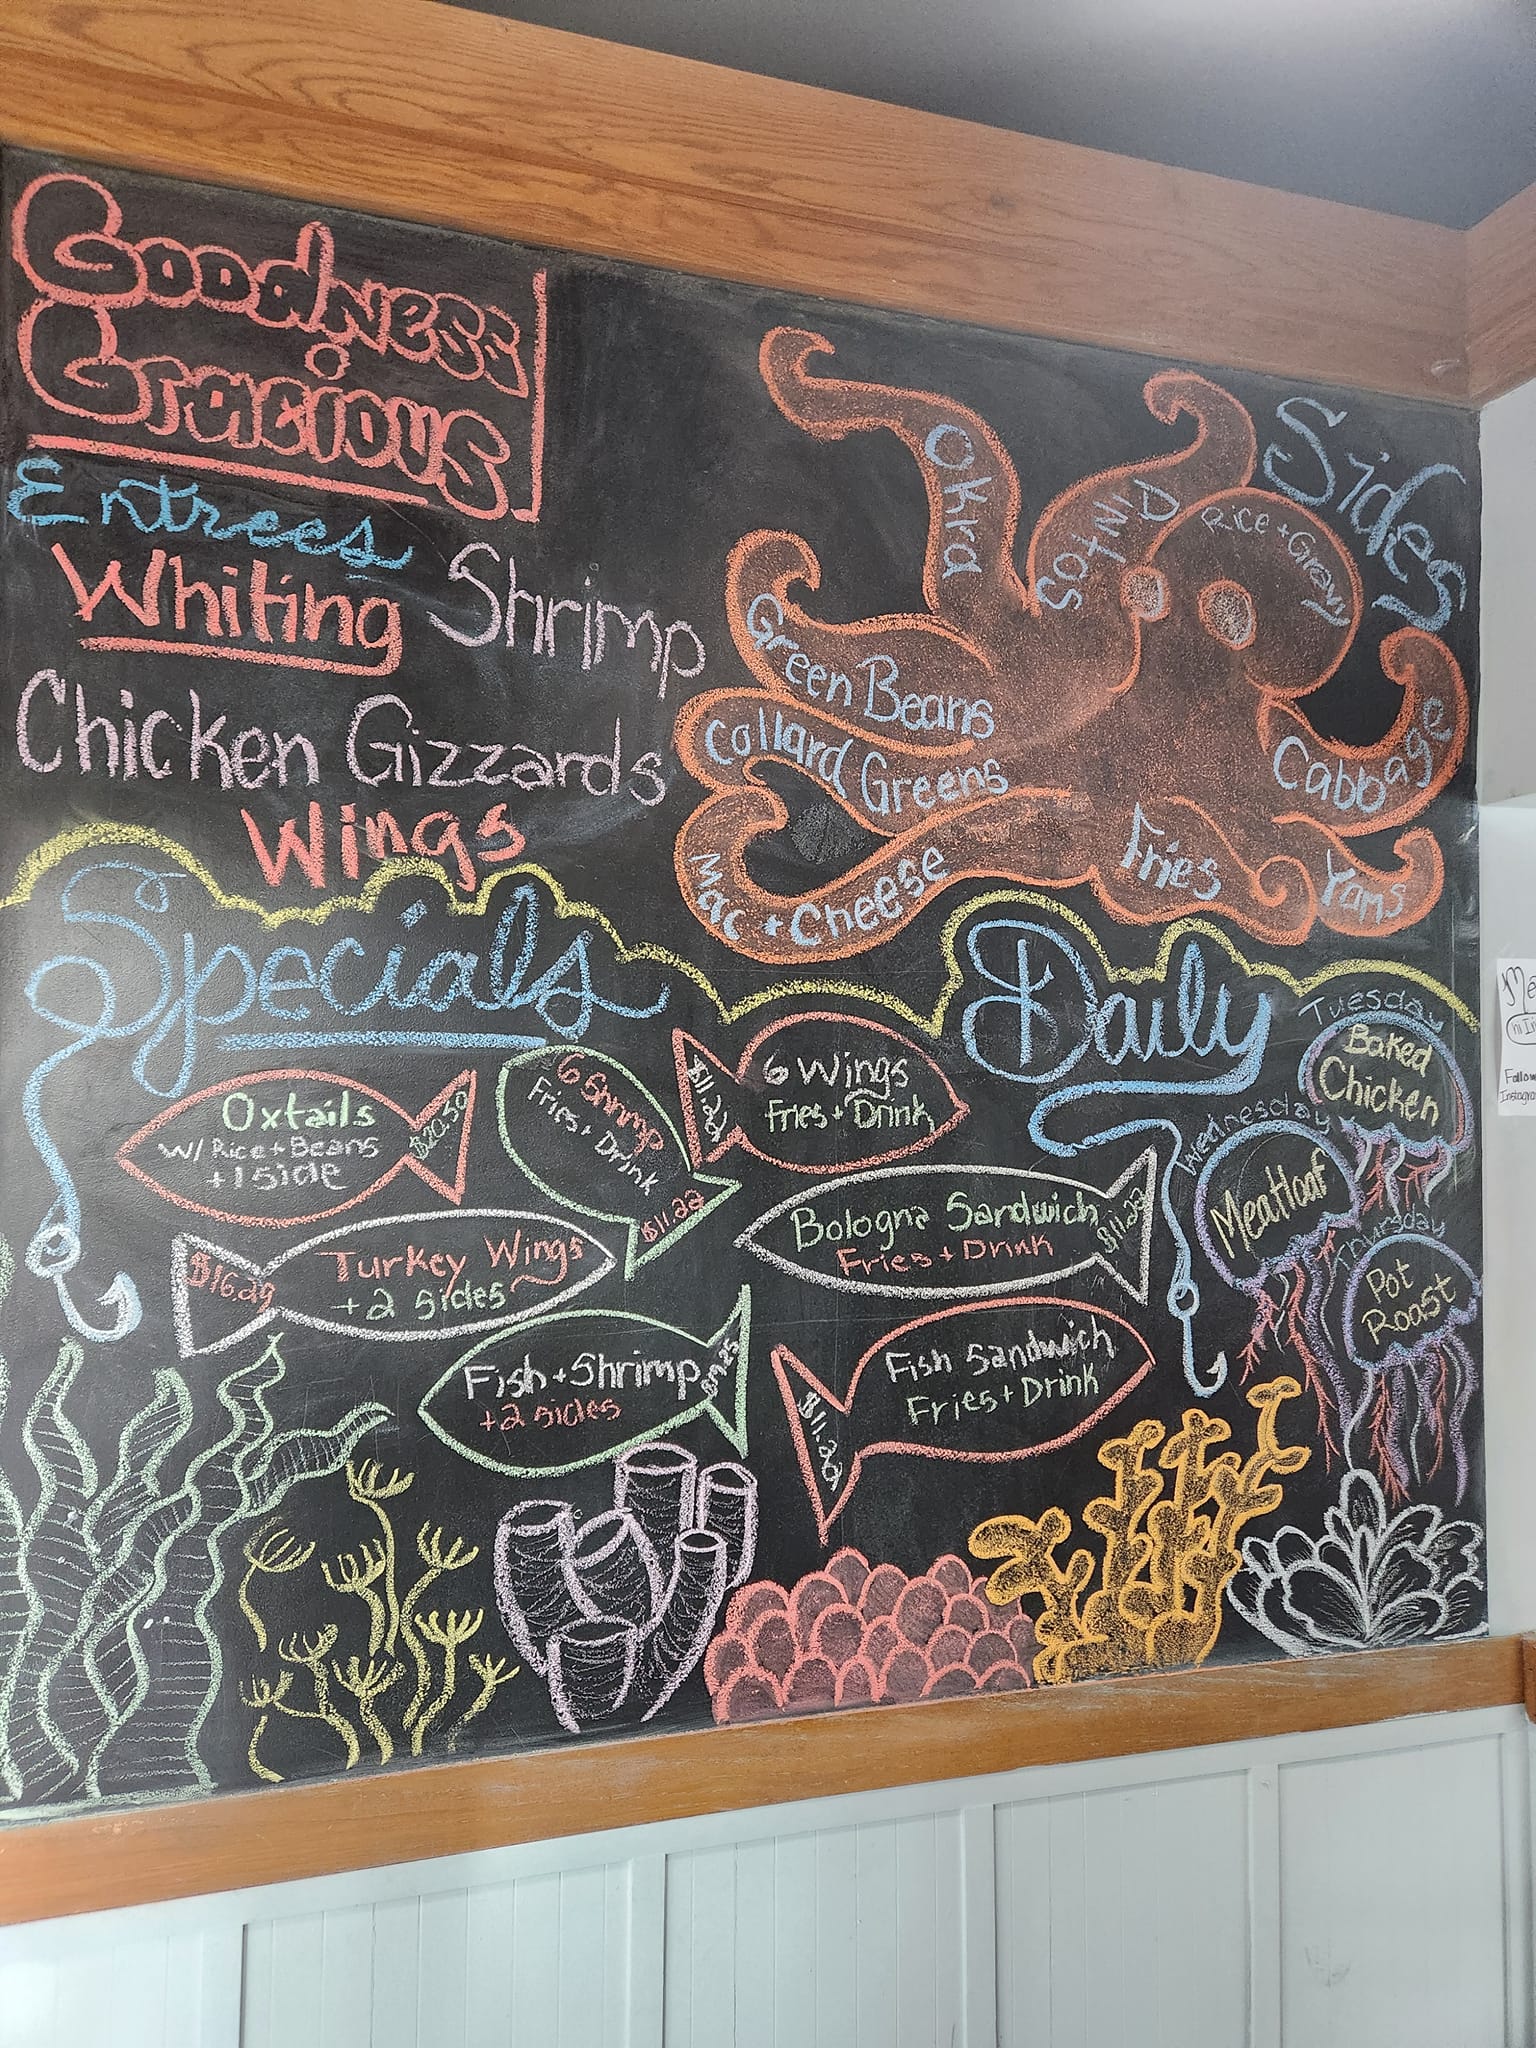 Goodness
Gracious
Entrees
Whiting Shrimp
Chicken Gizzards
Wings
Sides
Okra
Pintos
Rice + Gravy
Green Beans
Collard Greens
Mac + Cheese
Fries
Yams
Cabbage
Specials
Oxtails
W/ Rice + Beans
+ 1 Side
$20.50
6 Shrimp
Fries + Drink
$11.22
6 Wings
Fries + Drink
Turkey Wings
+ 2 sides
$16.29
Bologna Sandwich
Fries + Drink
$11.22
Fish + Shrimp
+ 2 sides
Fish Sandwich
Fries + Drink
Daily
Tuesday
Baked
Chicken
Wednesday
Meatloaf
Thursday
Pot
Roast